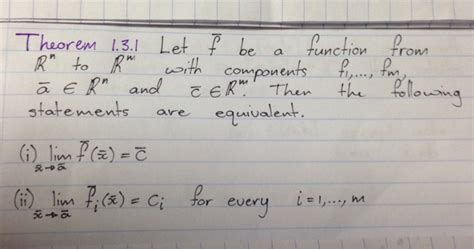 Theorem 1.3.1 Let f̄ be a function from
Rⁿ to Rᵐ with components f₁,..., fₘ,
ā ∈ Rⁿ and c̄ ∈ Rᵐ. Then the following
statements are equivalent.
(i) lim f̄(x̄) = c̄
x̄→ā
(ii) lim f̄ᵢ(x̄) = cᵢ for every i=1,..., m
x̄→ā